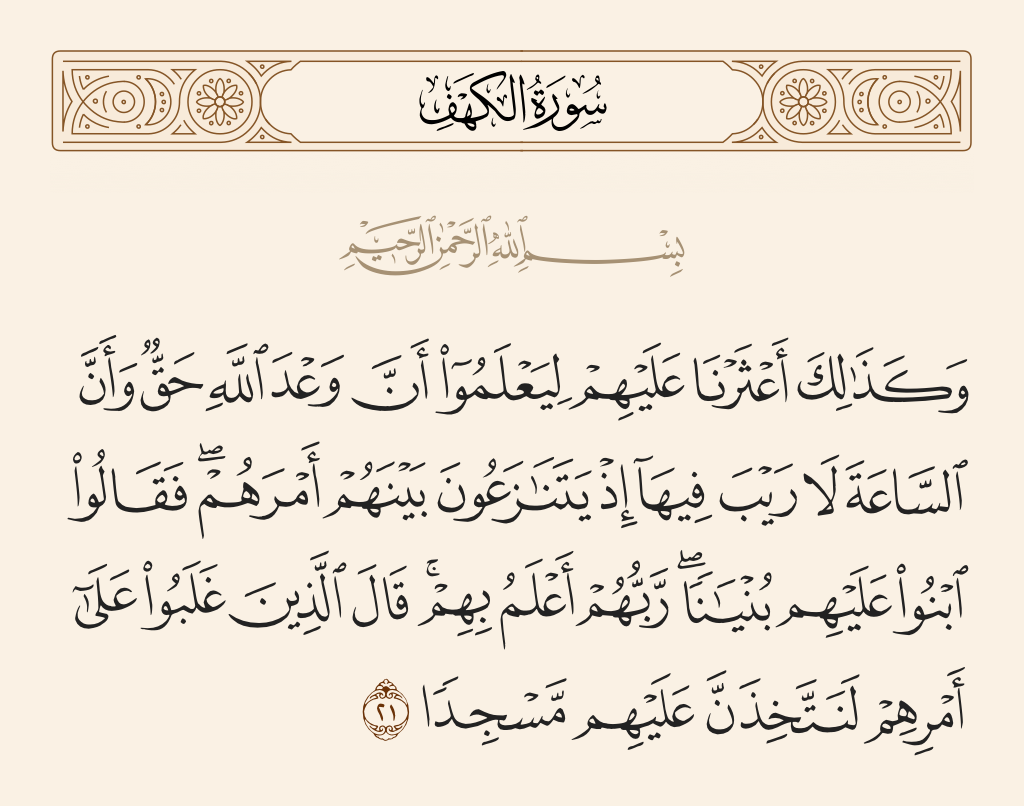 سُورَةُ الكَهْفِ
بِسْمِ ٱللَّهِ ٱلرَّحْمَٰنِ ٱلرَّحِيمِ
وَكَذَٰلِكَ أَعْثَرْنَا عَلَيْهِمْ لِيَعْلَمُوٓا۟ أَنَّ وَعْدَ ٱللَّهِ حَقٌّ وَأَنَّ
ٱلسَّاعَةَ لَا رَيْبَ فِيهَآ إِذْ يَتَنَٰزَعُونَ بَيْنَهُمْ أَمْرَهُمْ ۖ فَقَالُوا۟
ٱبْنُوا۟ عَلَيْهِم بُنْيَٰنًا ۖ رَّبُّهُمْ أَعْلَمُ بِهِمْ ۚ قَالَ ٱلَّذِينَ غَلَبُوا۟ عَلَىٰٓ
أَمْرِهِمْ لَنَتَّخِذَنَّ عَلَيْهِم مَّسْجِدًا ٢١